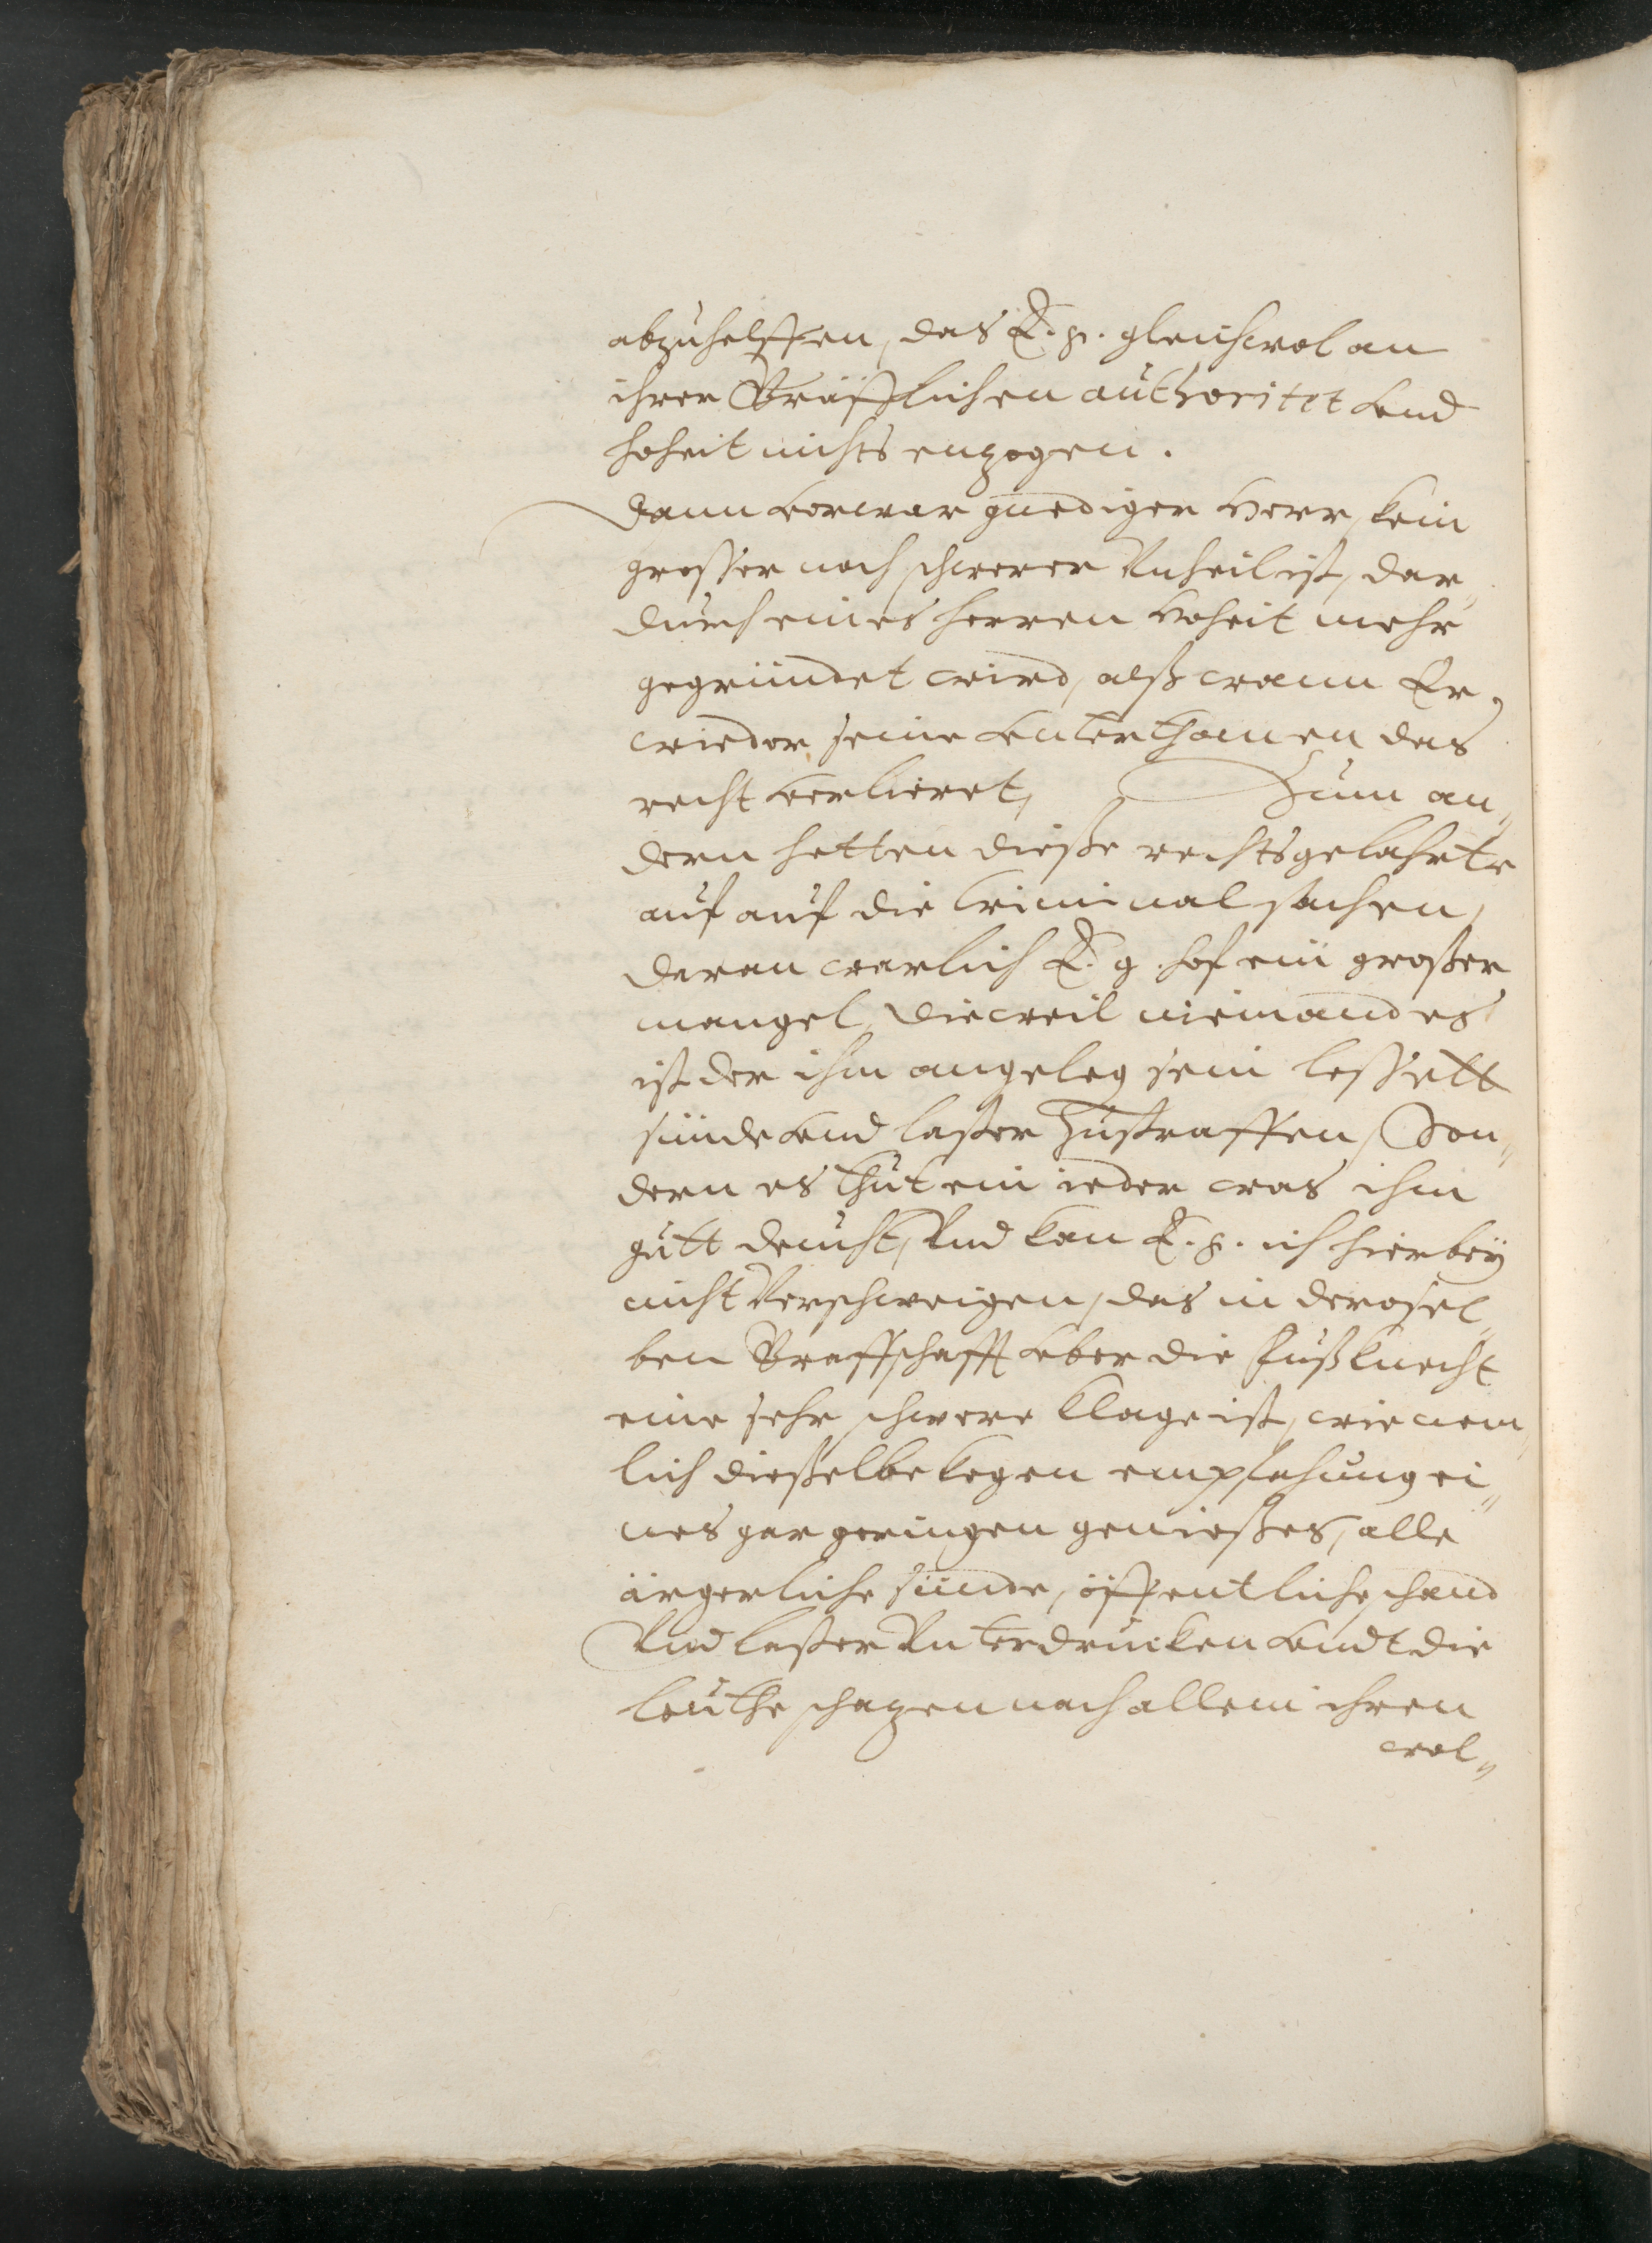 abzuhelffen, das E. g. gleichwol an
ihrer Gräfflichen authoritet vnd
hoheit nichts enzogen.
Dann vorwar gnediger Herr, kein
grosser noch schwerer Vnheil ist, dar„
durch eines herren Hoheit mehr
gegründet wird, alß wann Er,
wieder seine vnterthanen das
recht verlieret, Zum an„
dern hetten dieße rechtsgelahrte
auf auf die Criminal sachen,
daran warlich E. g. hof ein großer
mangel, dieweil niemand es
ist der ihm angeleg sein lessett
sünde vnd laster zustraffen, Son„
dern es thut ein ieder was ihm
gutt deucht, Vnd kan E. g. ich hierbey
nicht Verschweigen, das in derosel„
ben Graffschafft vber die Fußknecht
eine sehr schwere klage ist, wie nem„
lich dießelbe kegen empfahung ei„
nes gar geringen genießes, alle
ärgerliche sünde, öffentliche schand
Vnd laster Vnterdrucken vndt die
leuthe schazen nach allem ihren
wol„